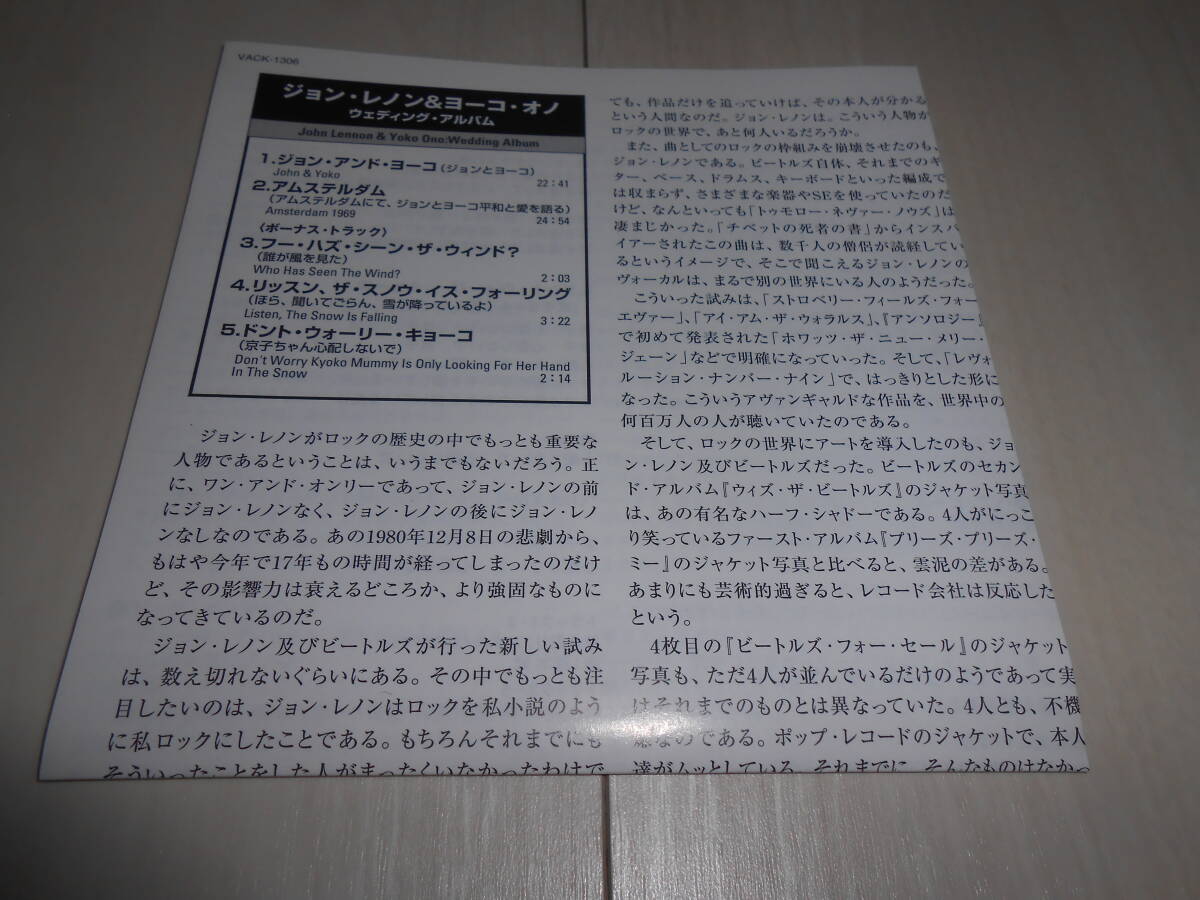 VACK-1306
ジョン・レノン&ヨーコ・オノ
ウェディング・アルバム
John Lennon & Yoko Ono:Wedding Album
1.ジョン・アンド・ヨーコ(ジョンとヨーコ)
John & Yoko 22:41
2.アムステルダム
(アムステルダムにて、ジョンとヨーコ平和と愛を語る)
Amsterdam 1969 24:54
〈ボーナス・トラック〉
3.フー・ハズ・シーン・ザ・ウィンド?
(誰が風を見た)
Who Has Seen The Wind? 2:03
4.リッスン、ザ・スノウ・イス・フォーリング
(ほら、聞いてごらん、雪が降っているよ)
Listen, The Snow Is Falling 3:22
5.ドント・ウォーリー・キョーコ
(京子ちゃん心配しないで)
Don't Worry Kyoko Mummy Is Only Looking For Her Hand
In The Snow 2:14
ジョン・レノンがロックの歴史の中でもっとも重要な
人物であるということは、いうまでもないだろう。正
に、ワン・アンド・オンリーであって、ジョン・レノンの前
にジョン・レノンなく、ジョン・レノンの後にジョン・レノ
ンなしなのである。あの1980年12月8日の悲劇から、
もはや今年で17年もの時間が経ってしまったのだけ
ど、その影響力は衰えるどころか、より強固なものに
なってきているのだ。
ジョン・レノン及びビートルズが行った新しい試み
は、数え切れないぐらいにある。その中でもっとも注
目したいのは、ジョン・レノンはロックを私小説のよう
に私ロックにしたことである。もちろんそれまでにも
そういったことをした人がまったくいなかったわけで
ても、作品だけを追っていけば、その本人が分かる
という人間なのだ。ジョン・レノンは。こういう人物が
ロックの世界で、あと何人いるだろうか。
また、曲としてのロックの枠組みを崩壊させたのも、
ジョン・レノンである。ビートルズ自体、それまでのギ
ター、ベース、ドラムス、キーボードといった編成で
は収まらず、さまざまな楽器やSEを使っていたのだ
けど、なんといっても「トゥモロー・ネヴァー・ノウズ」は
凄まじかった。「チベットの死者の書」からインスパ
イアーされたこの曲は、数千人の僧侶が読経してい
るというイメージで、そこで聞こえるジョン・レノンの
ヴォーカルは、まるで別の世界にいる人のようだった。
こういった試みは、「ストロベリー・フィールズ・フォー
エヴァー」、「アイ・アム・ザ・ウォラルス」、『アンソロジー』
で初めて発表された「ホワッツ・ザ・ニュー・メリー・
ジェーン」などで明確になっていった。そして、「レヴォ
ルーション・ナンバー・ナイン」で、はっきりとした形に
なった。こういうアヴァンギャルドな作品を、世界中の
何百万人の人が聴いていたのである。
そして、ロックの世界にアートを導入したのも、ジョ
ン・レノン及びビートルズだった。ビートルズのセカン
ド・アルバム『ウィズ・ザ・ビートルズ』のジャケット写真
は、あの有名なハーフ・シャドーである。4人がにっこ
り笑っているファースト・アルバム『プリーズ・プリーズ・
ミー』のジャケット写真と比べると、雲泥の差がある。
あまりにも芸術的過ぎると、レコード会社は反応した
という。
4枚目の『ビートルズ・フォー・セール』のジャケット
写真も、ただ4人が並んでいるだけのようであって実
はそれまでのものとは異なっていた。4人とも、不機
嫌なのである。ポップ・レコードのジャケットで、本人
達がムッとしている。それまでに、そんなものはなかっ